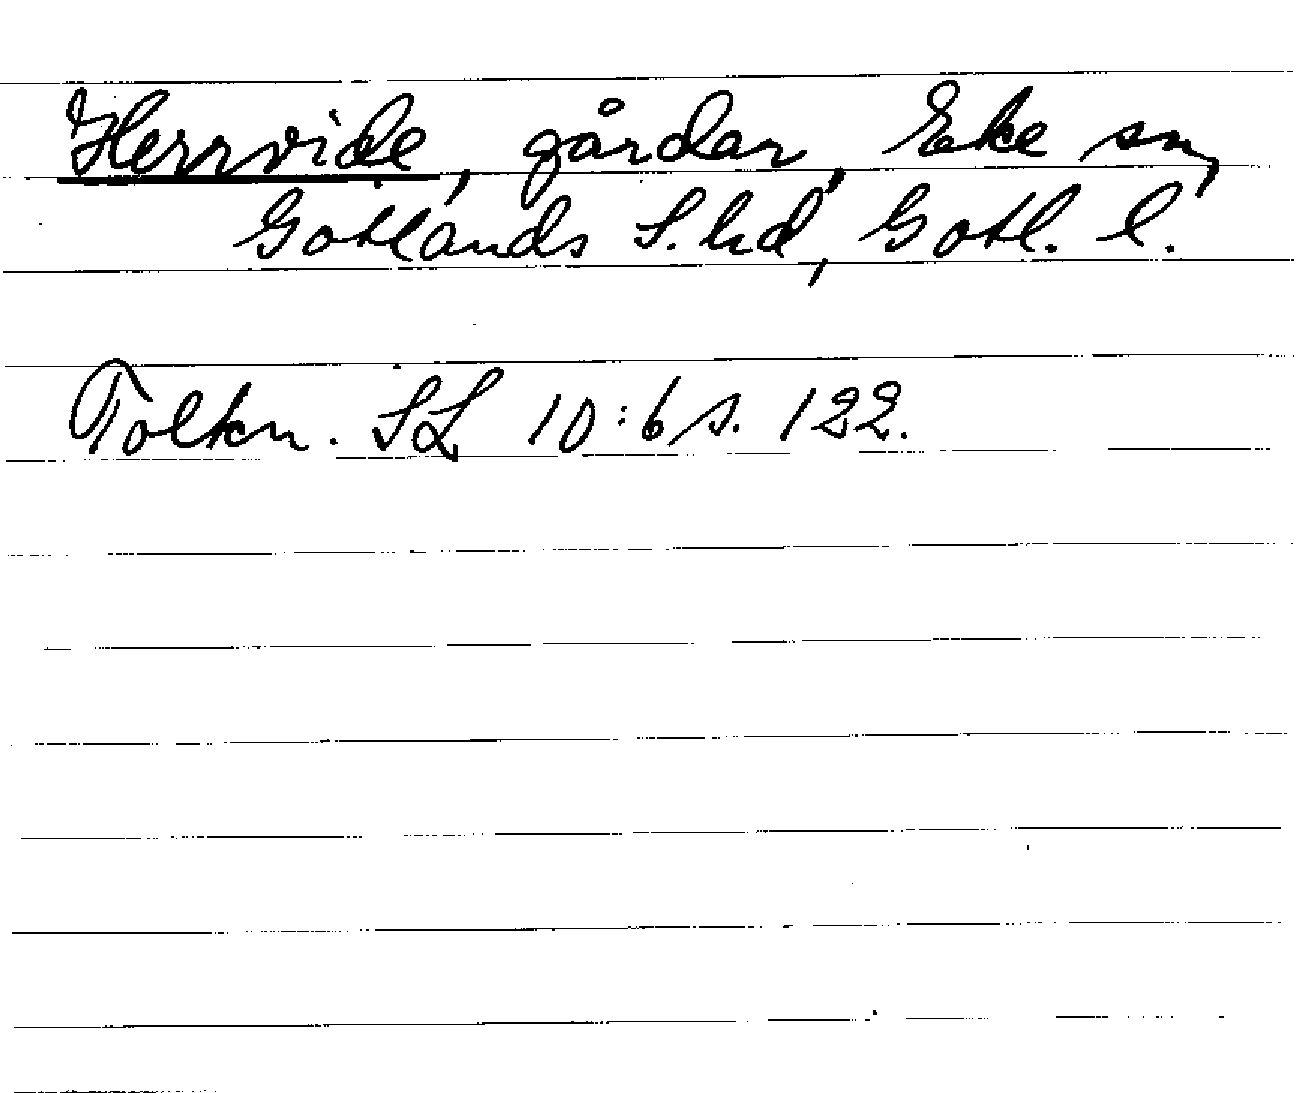 Herrvide, gårdar, Eke sn,
Gotlands S. hd, Gotl. l.
Tolkn. SL 10:6 s. 122.